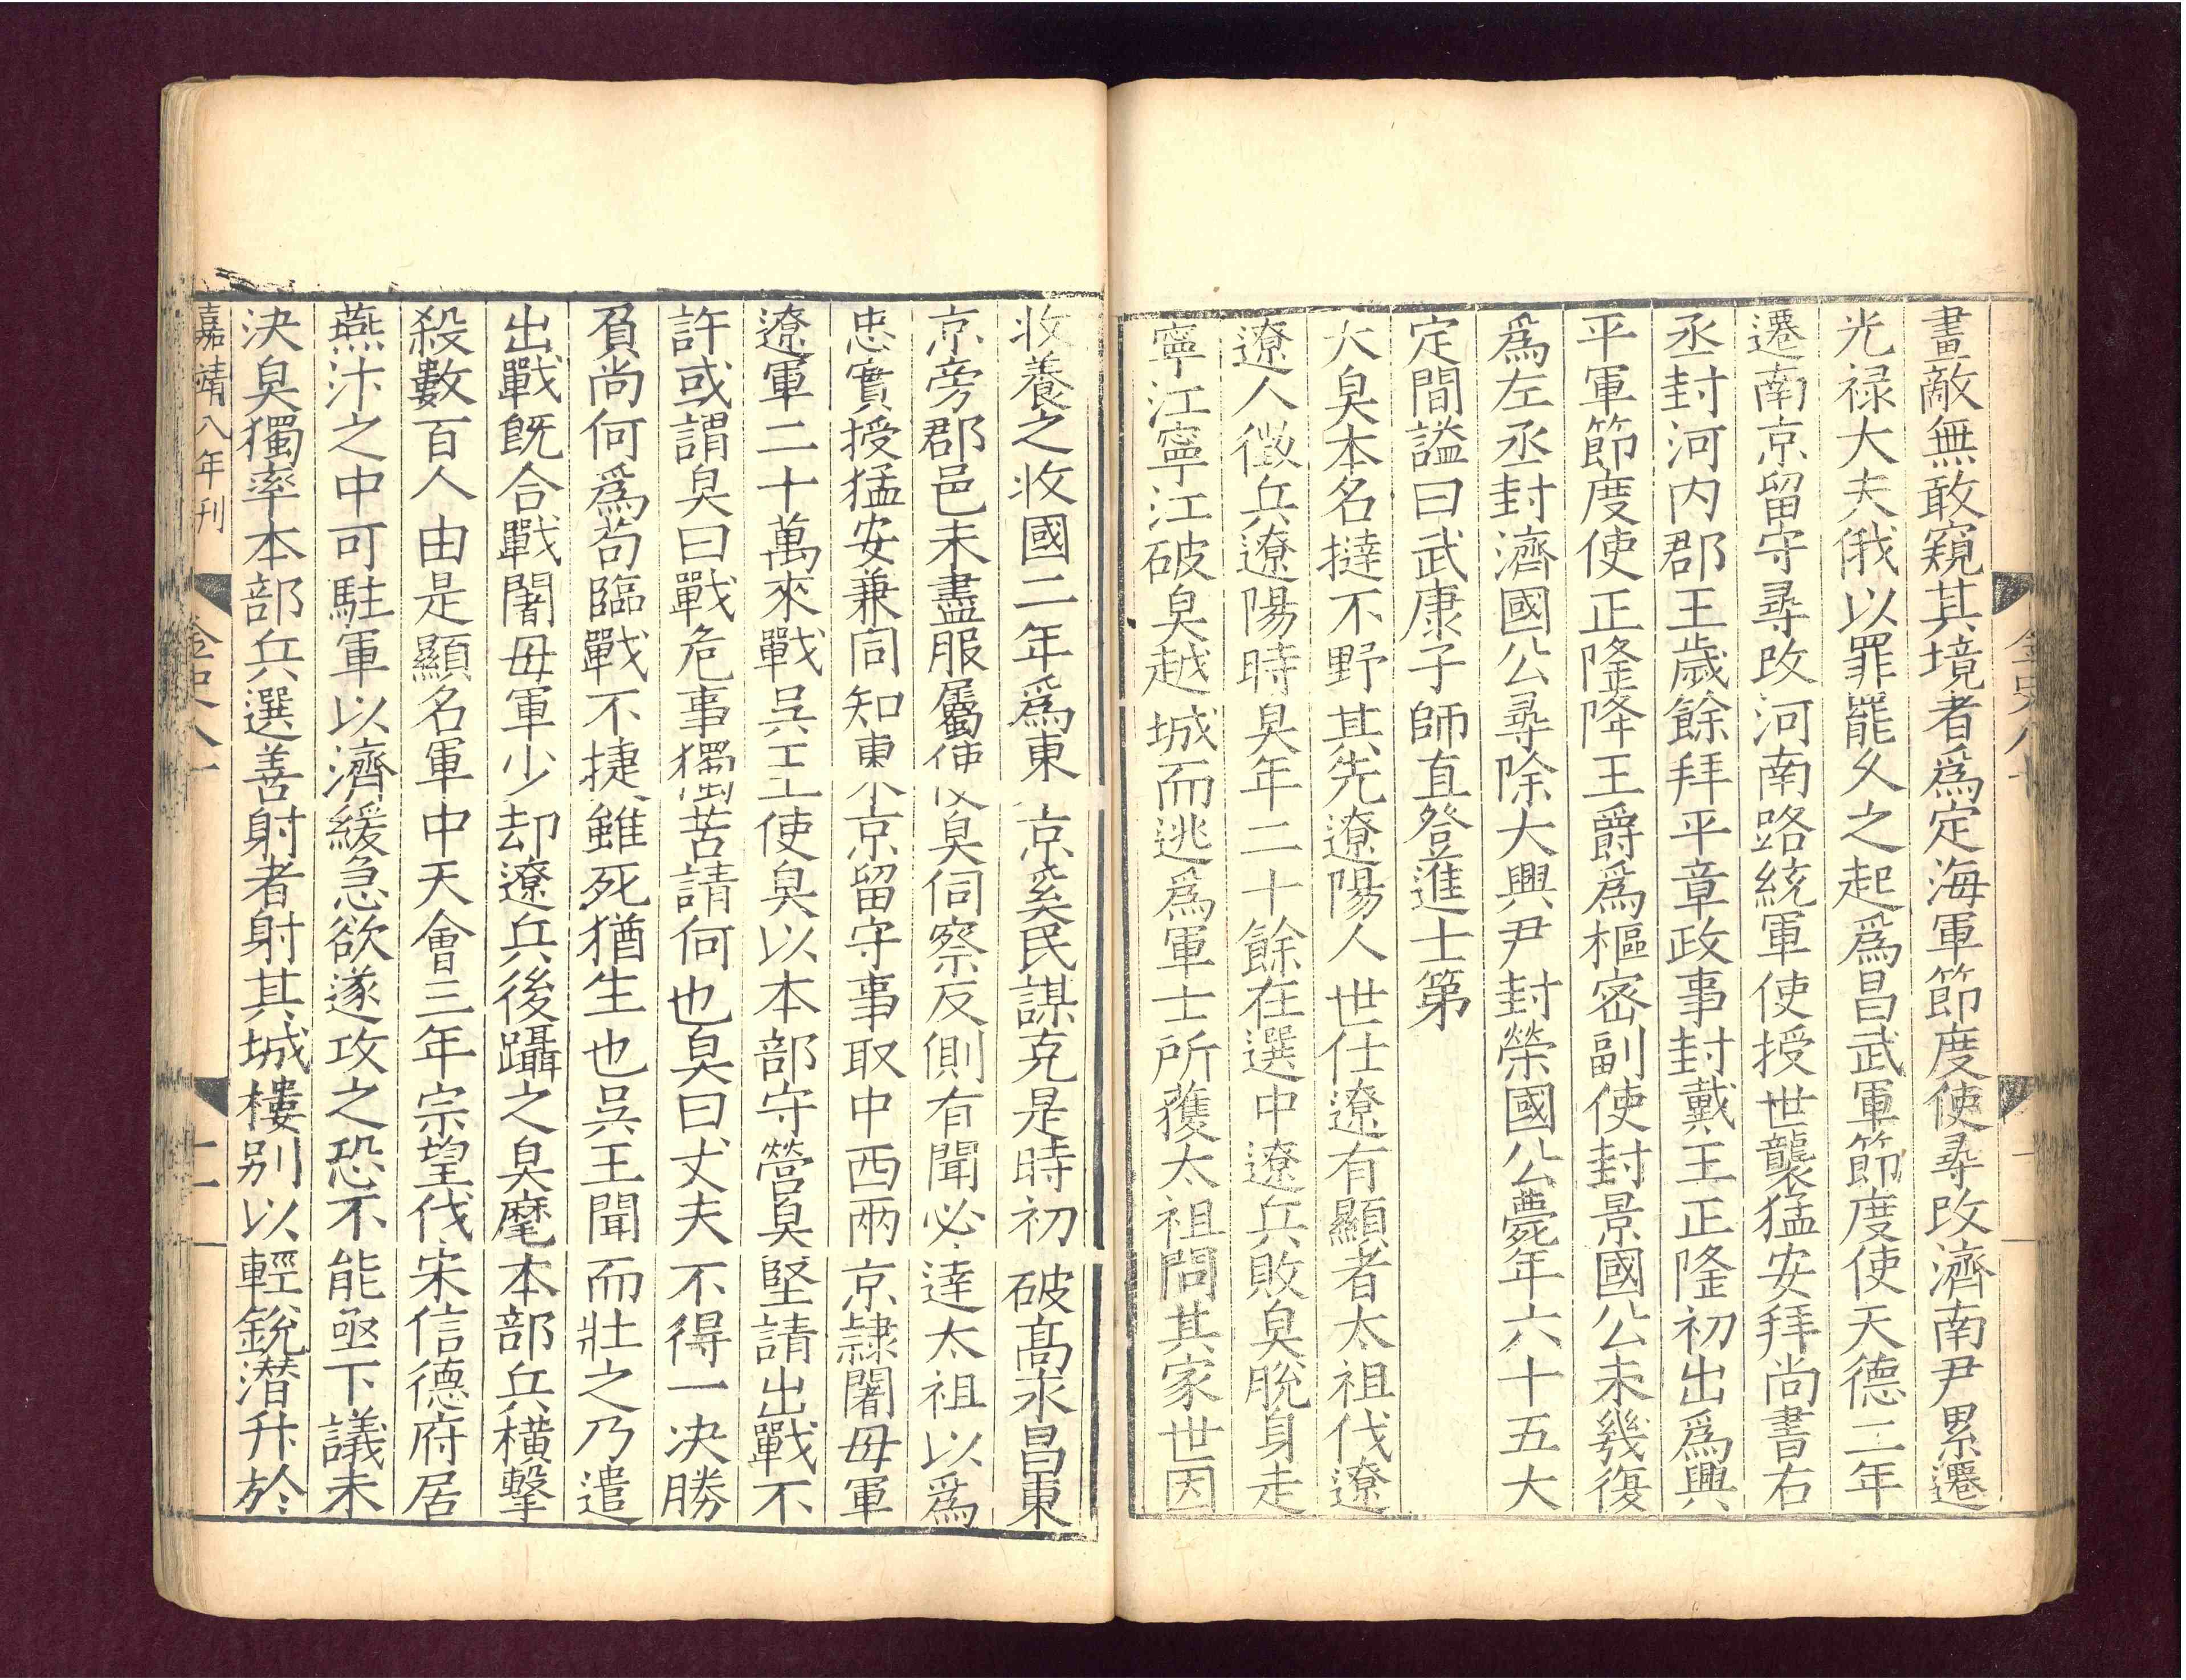 畫敵無敢窺其境者爲定海軍節度使尋改濟南尹累遷
光禄大夫俄以罪罷久之起爲昌武軍節度使天德二年
遷南京留守尋改河南路統軍使授世襲猛安拜尚書右
丞封河内郡王歲餘拜平章政事封戴王正隆初出爲興
平軍節度使正隆降王爵爲樞密副使封景國公未幾復
爲左丞封濟國公尋除大興尹封榮國公薨年六十五大
定間謚曰武康子師直登進士第
大㚖本名撻不野其先遼陽人世仕遼有顯者太祖伐遼
遼人徵兵遼陽時㚖年二十餘在選中遼兵敗㚖脫身走
寧江寧江破㚖越城而逃爲軍士所獲太祖問其家世因
金史八十
收養之收國二年爲東京奚民謀克是時初破髙永昌東
京旁郡邑未盡服屬使㚖伺察反側有聞必達太祖以爲
忠實授猛安兼同知東京留守事取中西兩京隷闍母軍
遼軍二十萬來戰吳王使㚖以本部守營㚖堅請出戰不
許或謂㚖曰戰危事獨苦請何也㚖曰丈夫不得一决勝
負尚何爲茍臨戰不捷雖死猶生也吳王聞而壯之乃遣
出戰旣合戰闍母軍少却遼兵後躡之㚖麾本部兵橫擊
殺數百人由是顯名軍中天會三年宗望伐宋信德府居
燕汴之中可駐軍以濟緩急欲遂攻之恐不能亟下議未
决㚖獨率本部兵選善射者射其城樓别以輕銳潛升於
嘉靖八年刊
金史八十
十一